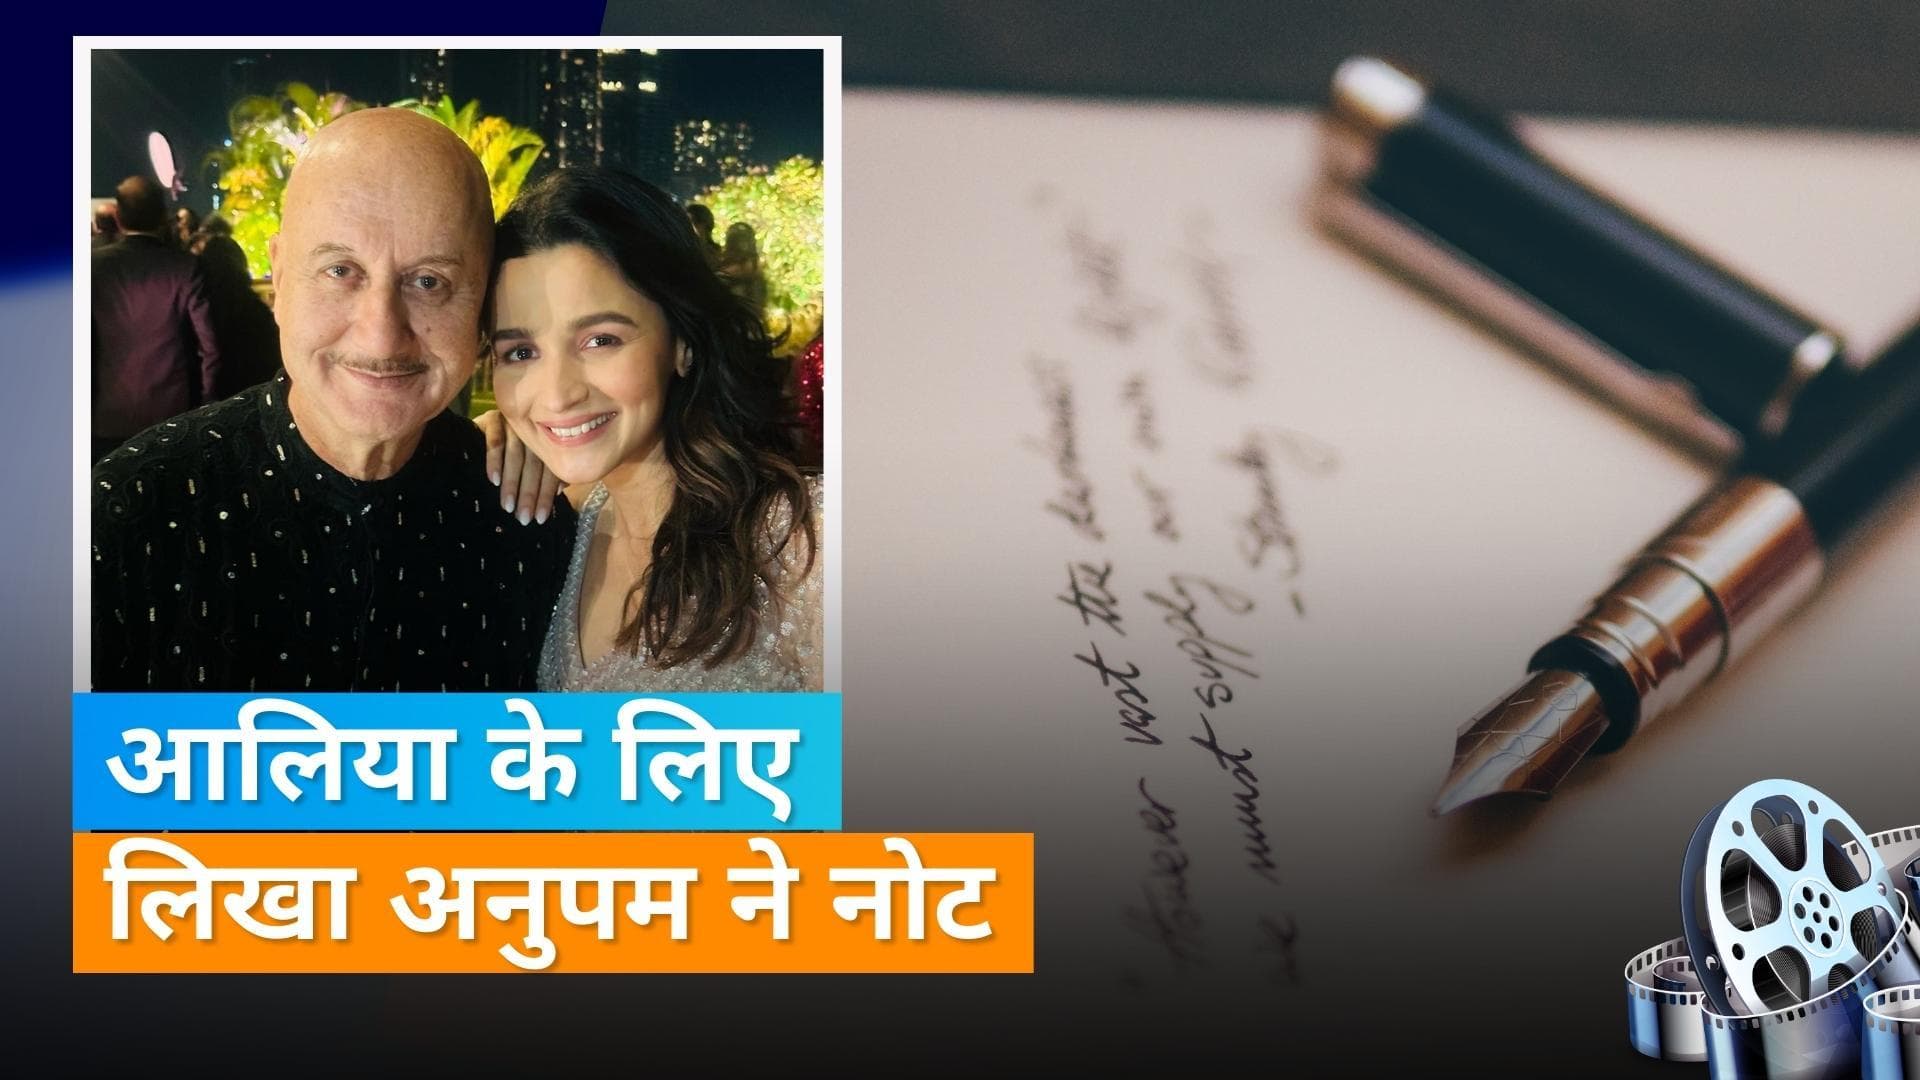 आलिया के लिए
लिखा अनुपम ने नोट
However vast the darkness
we must supply our own light